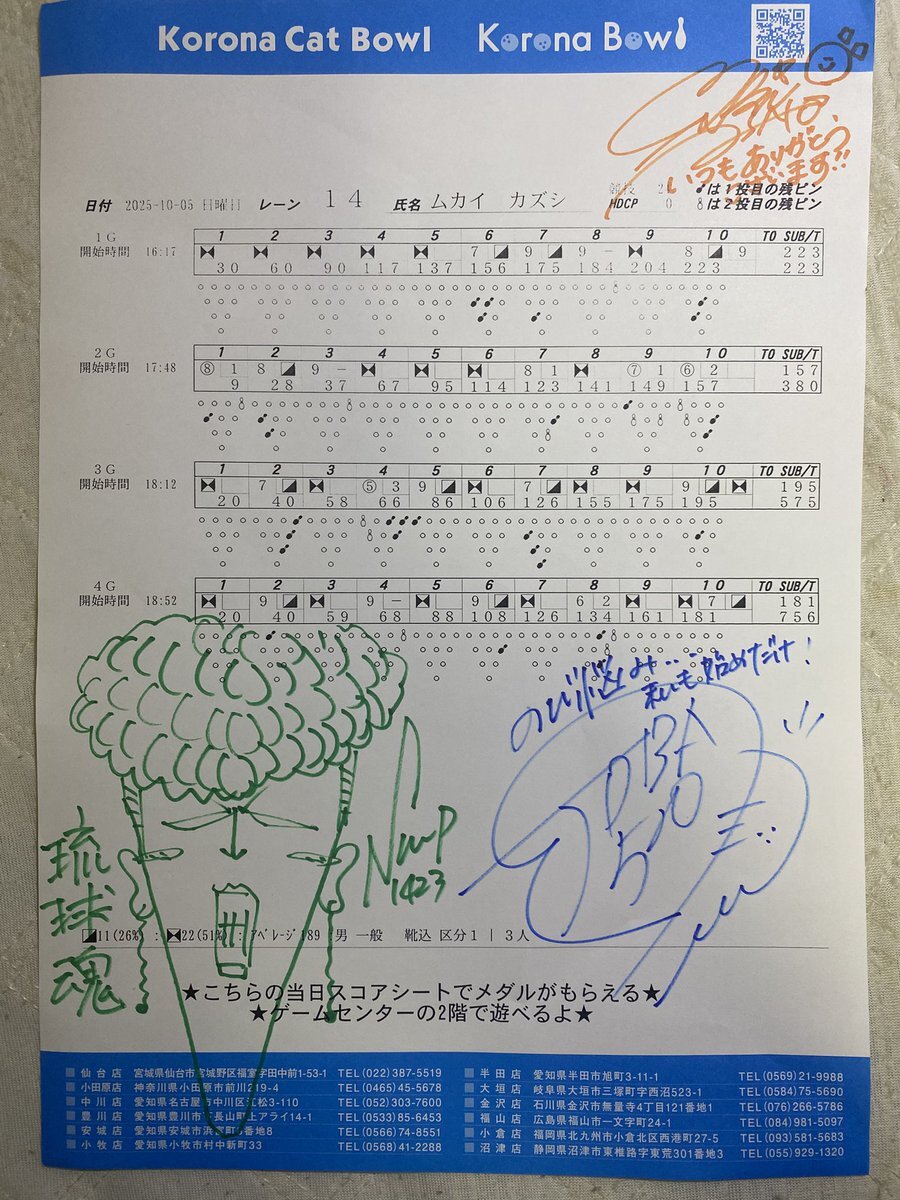 Korona Cat Bowl Korona Bowl
いつもありがとう
ございます!!
競技 は1投目の残ピン
日付 2025-10-05 日曜日 レーン 14 氏名 ムカイ カズシ HDCP 0 は2投目の残ピン
1G 1 2 3 4 5 6 7 8 9 10 TO SUB/T
開始時間 16:17 7 9 9 - 8 9 223
30 60 90 117 137 156 175 184 204 223 223
2G 1 2 3 4 5 6 7 8 9 10 TO SUB/T
開始時間 17:48 ⑧ 1 8 9 - 8 1 ⑦ 1 ⑥ 2 157
9 28 37 67 95 114 123 141 149 157 380
3G 1 2 3 4 5 6 7 8 9 10 TO SUB/T
開始時間 18:12 7 ⑤ 3 9 7 9 195
20 40 58 66 86 106 126 155 175 195 575
4G 1 2 3 4 5 6 7 8 9 10 TO SUB/T
開始時間 18:52 9 9 - 9 6 2 7 181
20 40 59 68 88 108 126 134 161 181 756
私も始めだけ!
琉球魂
1423
11(26%) : 22(51%) : アベレージ189 男 一般 靴込 区分1 | 3人
★こちらの当日スコアシートでメダルがもらえる★
★ゲームセンターの2階で遊べるよ★
仙台店 宮城県仙台市宮城野区福室字田中前1-53-1 TEL(022)387-5519
小田原店 神奈川県小田原市前川219-4 TEL(0465)45-5678
中川店 愛知県名古屋市中川区江松3-110 TEL(052)303-7600
豊川店 愛知県豊川市下長山町上アライ14-1 TEL(0533)85-6453
安城店 愛知県安城市浜富町6番地8 TEL(0566)74-8551
小牧店 愛知県小牧市村中新町33 TEL(0568)41-2288
半田店 愛知県半田市旭町3-11-1 TEL(0569)21-9988
大垣店 岐阜県大垣市三塚町字西沼523-1 TEL(0584)75-5690
金沢店 石川県金沢市無量寺4丁目121番地1 TEL(076)266-5786
福山店 広島県福山市一文字町24-1 TEL(084)981-5097
小倉店 福岡県北九州市小倉北区西港町27-5 TEL(093)581-5683
沼津店 静岡県沼津市東椎路字東荒301番地3 TEL(055)929-1320